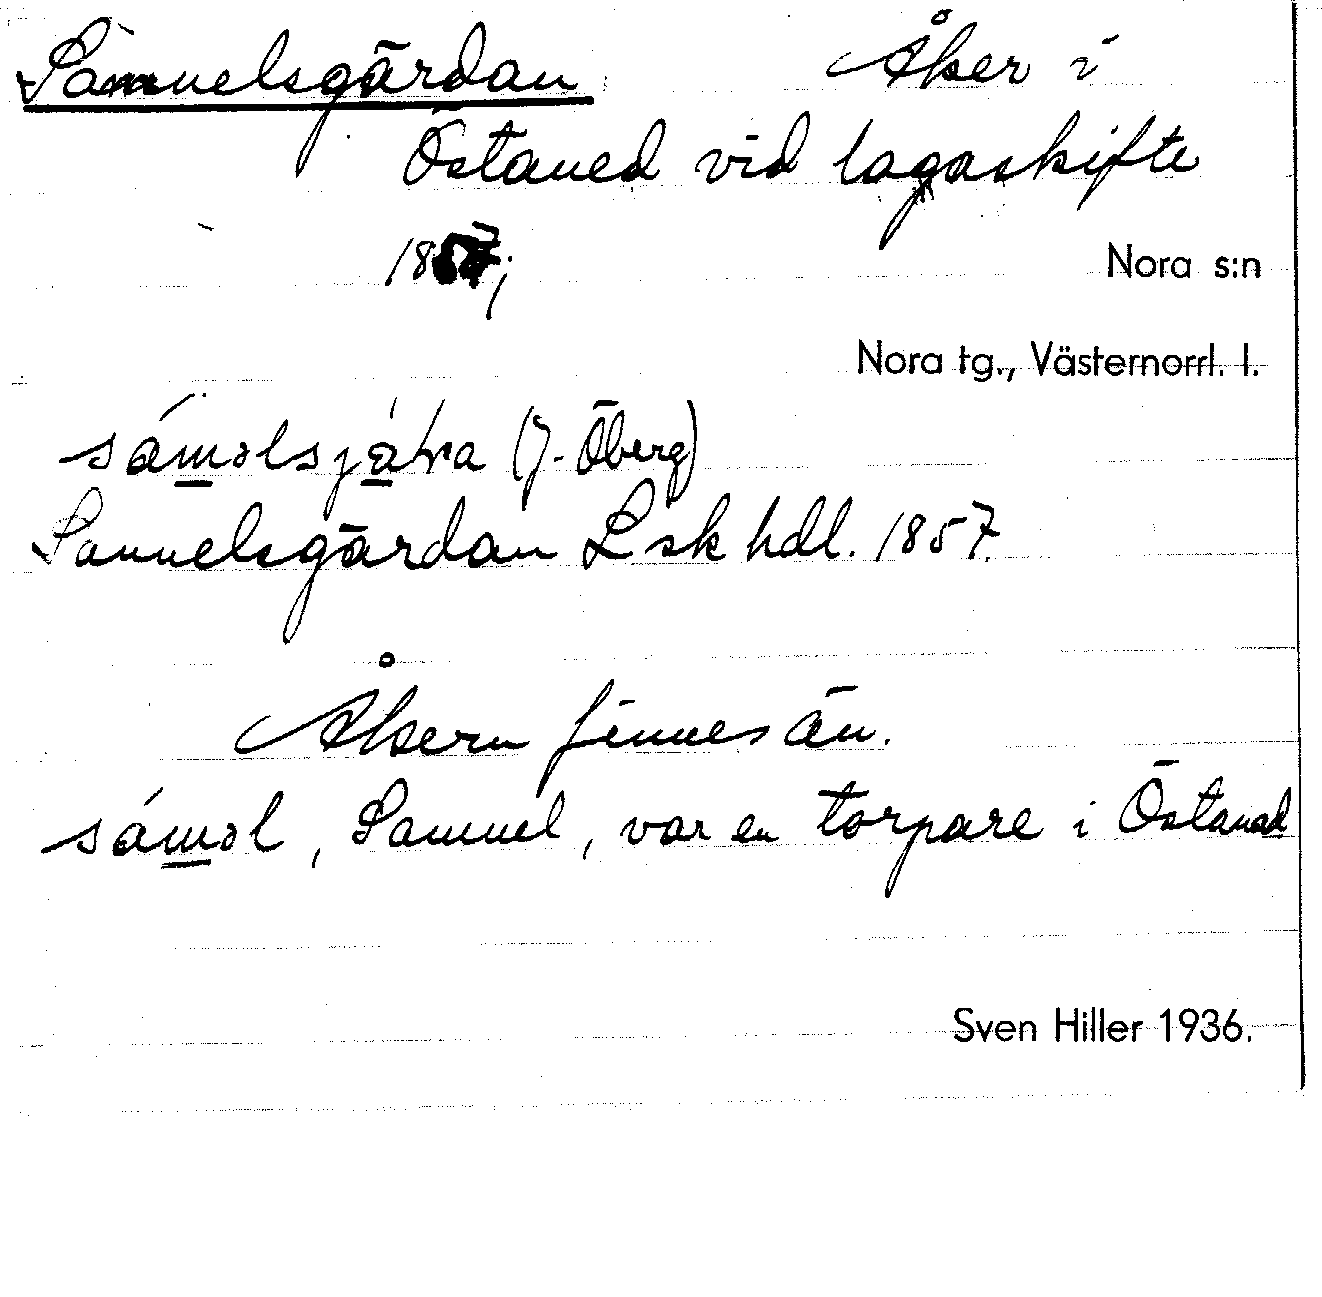 Samuelsgärdan Åker i
Östaned vid lagaskifte
1857;
Nora s:n
Nora tg., Västernorrl. l.
(J. Öberg)
Samuelsgärdan Lsk hdl. 1857.
Åkern finnes än.
sáməl, Samuel, var en torpare i Östaned
Sven Hiller 1936.